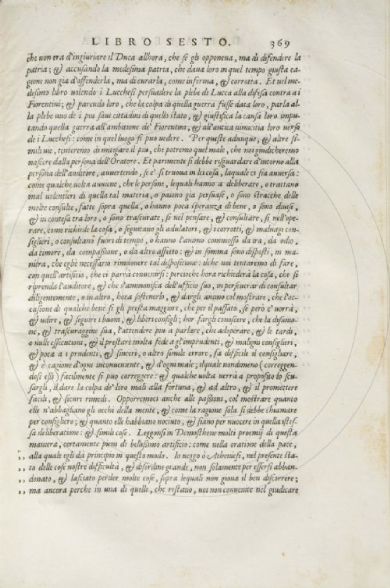 LIBRO SESTO. 369
che non era d'ingiuriare il Duca allhora, che se gli opponeua, ma di difendere la
patria; & accusando la medesima patria, che daua loro in quel tempo giusta ca-
gione non già d'offenderla, ma di curarla, come inferma, & corrotta. Et nel me-
desimo libro uolendo i Lucchesi persuadere la plebe di Lucca alla difesa contra a i
Fiorentini; & parendo loro, che la colpa di quella guerra fusse data loro, parla al-
la plebe uno de i piu saui cittadini di quello stato, & giustifica la causa loro impu-
tando quella guerra all'ambitione de' Fiorentini, & all'antica inimicitia loro uerso
de i Lucchesi: come in quel luogo si puo uedere. Per queste adunque, & altre si-
mili uie, tenteremo di mitigare il piu, che potremo quel male, che noi giudicheremo
nascere dalla persona dell'Oratore. Et parimente si debbe risguardare d'intorno alla
persona dell'auditore, auuertendo, se e' si truoua in lei cosa, laquale ci sia auuersa:
come qualche uolta auuiene, che le persone, lequali hanno a deliberare, o trattano
mal uolentieri di quella tal materia, o paiono gia persuase, o sono stracche delle
molte consulte, fatte sopra quella, o hanno poca speranza di bene, o sono diuise,
& in contesa tra loro, o sono trascurate, si nel pensare, & consultare, si nell'ope-
rare, come richiede la cosa, o seguitano gli adulatori, & i corrotti, & maluagi con-
siglieri, o consultano fuori di tempo, o hanno l'animo commosso da ira, da odio,
da timore, da compassione, o da altro affetto; & in somma sono disposti, in ma-
niera, che egli è necessario rimuouere tal dispositione: ilche noi tenteremo di fare
con quell'artificio, che ci parrà conuenirsi: percioche hora richiederà la cosa, che si
riprenda l'auditore, & che s'ammonisca dell'ufficio suo, in persuader di consultar
diligentemente, & in altro, hora sostenerlo, & dargli animo col mostrare, che l'oc-
casione di qualche bene si gli presta maggiore, che per il passato, se però e' uorrà,
& udire, & seguire i buoni, & liberi consigli; hor fargli conoscere, che la disunio-
ne, & trascuraggine sua, l'attendere piu a parlare, che adoperare, & le tarde,
o nulle essecutioni, & il prestare molta fede a gl'imprudenti, & maligni consiglieri,
& poca a i prudenti, & sinceri, o altro simile errore, fa difficile il consigliare,
& è cagione d'ogni inconueniente, & d'ogni male; ilquale nondimeno (correggen-
dosi essi) facilmente si puo correggere: & qualche uolta uerrà a proposito lo scu-
sargli, & dare la colpa de' lor mali alla fortuna, & ad altro, & il promettere
facili, & sicuri rimedi. Opporremoci anche alle passioni, col mostrare quanto
elle n'abbagliano gli occhi della mente, & come la ragione sola si debbe chiamare
per consigliera; & quanto elle habbiano nociuto, & siano per nuocere in quella istes-
sa deliberatione: & simili cose. Leggonsi in Demosthene molti proemij di questa
maniera, certamente pieni di bellissimo artificio: come nella oratione della pace,
,, alla quale egli dà principio in questo modo. Io ueggo ò Atheniesi, nel presente sta-
,, to delle cose nostre difficultà, & disordine grande, non solamente per essersi abban-
,, donato, & lasciato perdere molte cose, sopra lequali non gioua il ben discorrere;
,, ma ancora perche in una di quelle, che restano, noi non conuenite nel giudicare